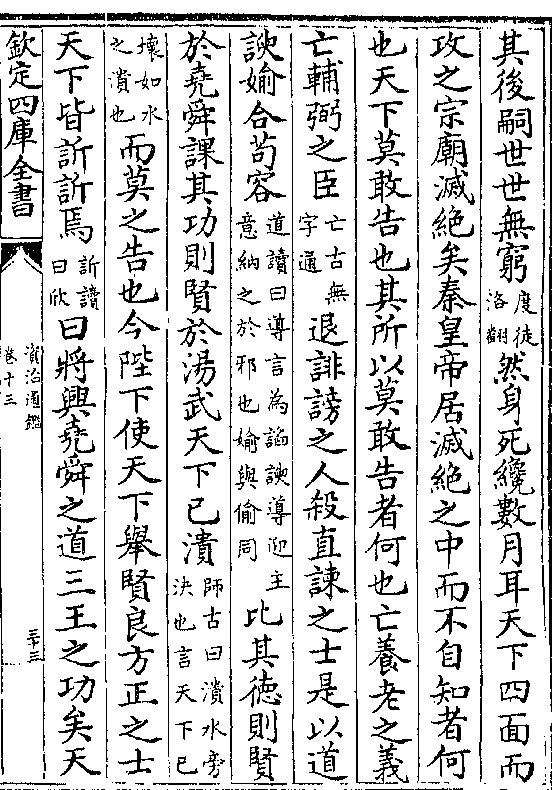 其後嗣世世無窮度徒洛翻然身死纔數月耳天下四面而
攻之宗廟滅絶矣秦皇帝居滅絶之中而不自知者何
也天下莫敢告也其所以莫敢告者何也亡養老之義
亡輔弼之臣亡古無字通退誹謗之人殺直諫之士是以道
諛媮合苟容道讀曰導言為諂諛導迎主意納之於邪也媮與偷同比其徳則賢
於堯舜課其功則賢於湯武天下已潰師古曰潰水旁決也言天下已
壊如水之潰也而莫之告也今陛下使天下舉賢良方正之士
天下皆訢訢焉訢讀曰欣曰將興堯舜之道三王之功矣天
欽定四庫全書
資治通鑑
卷十三
三十三